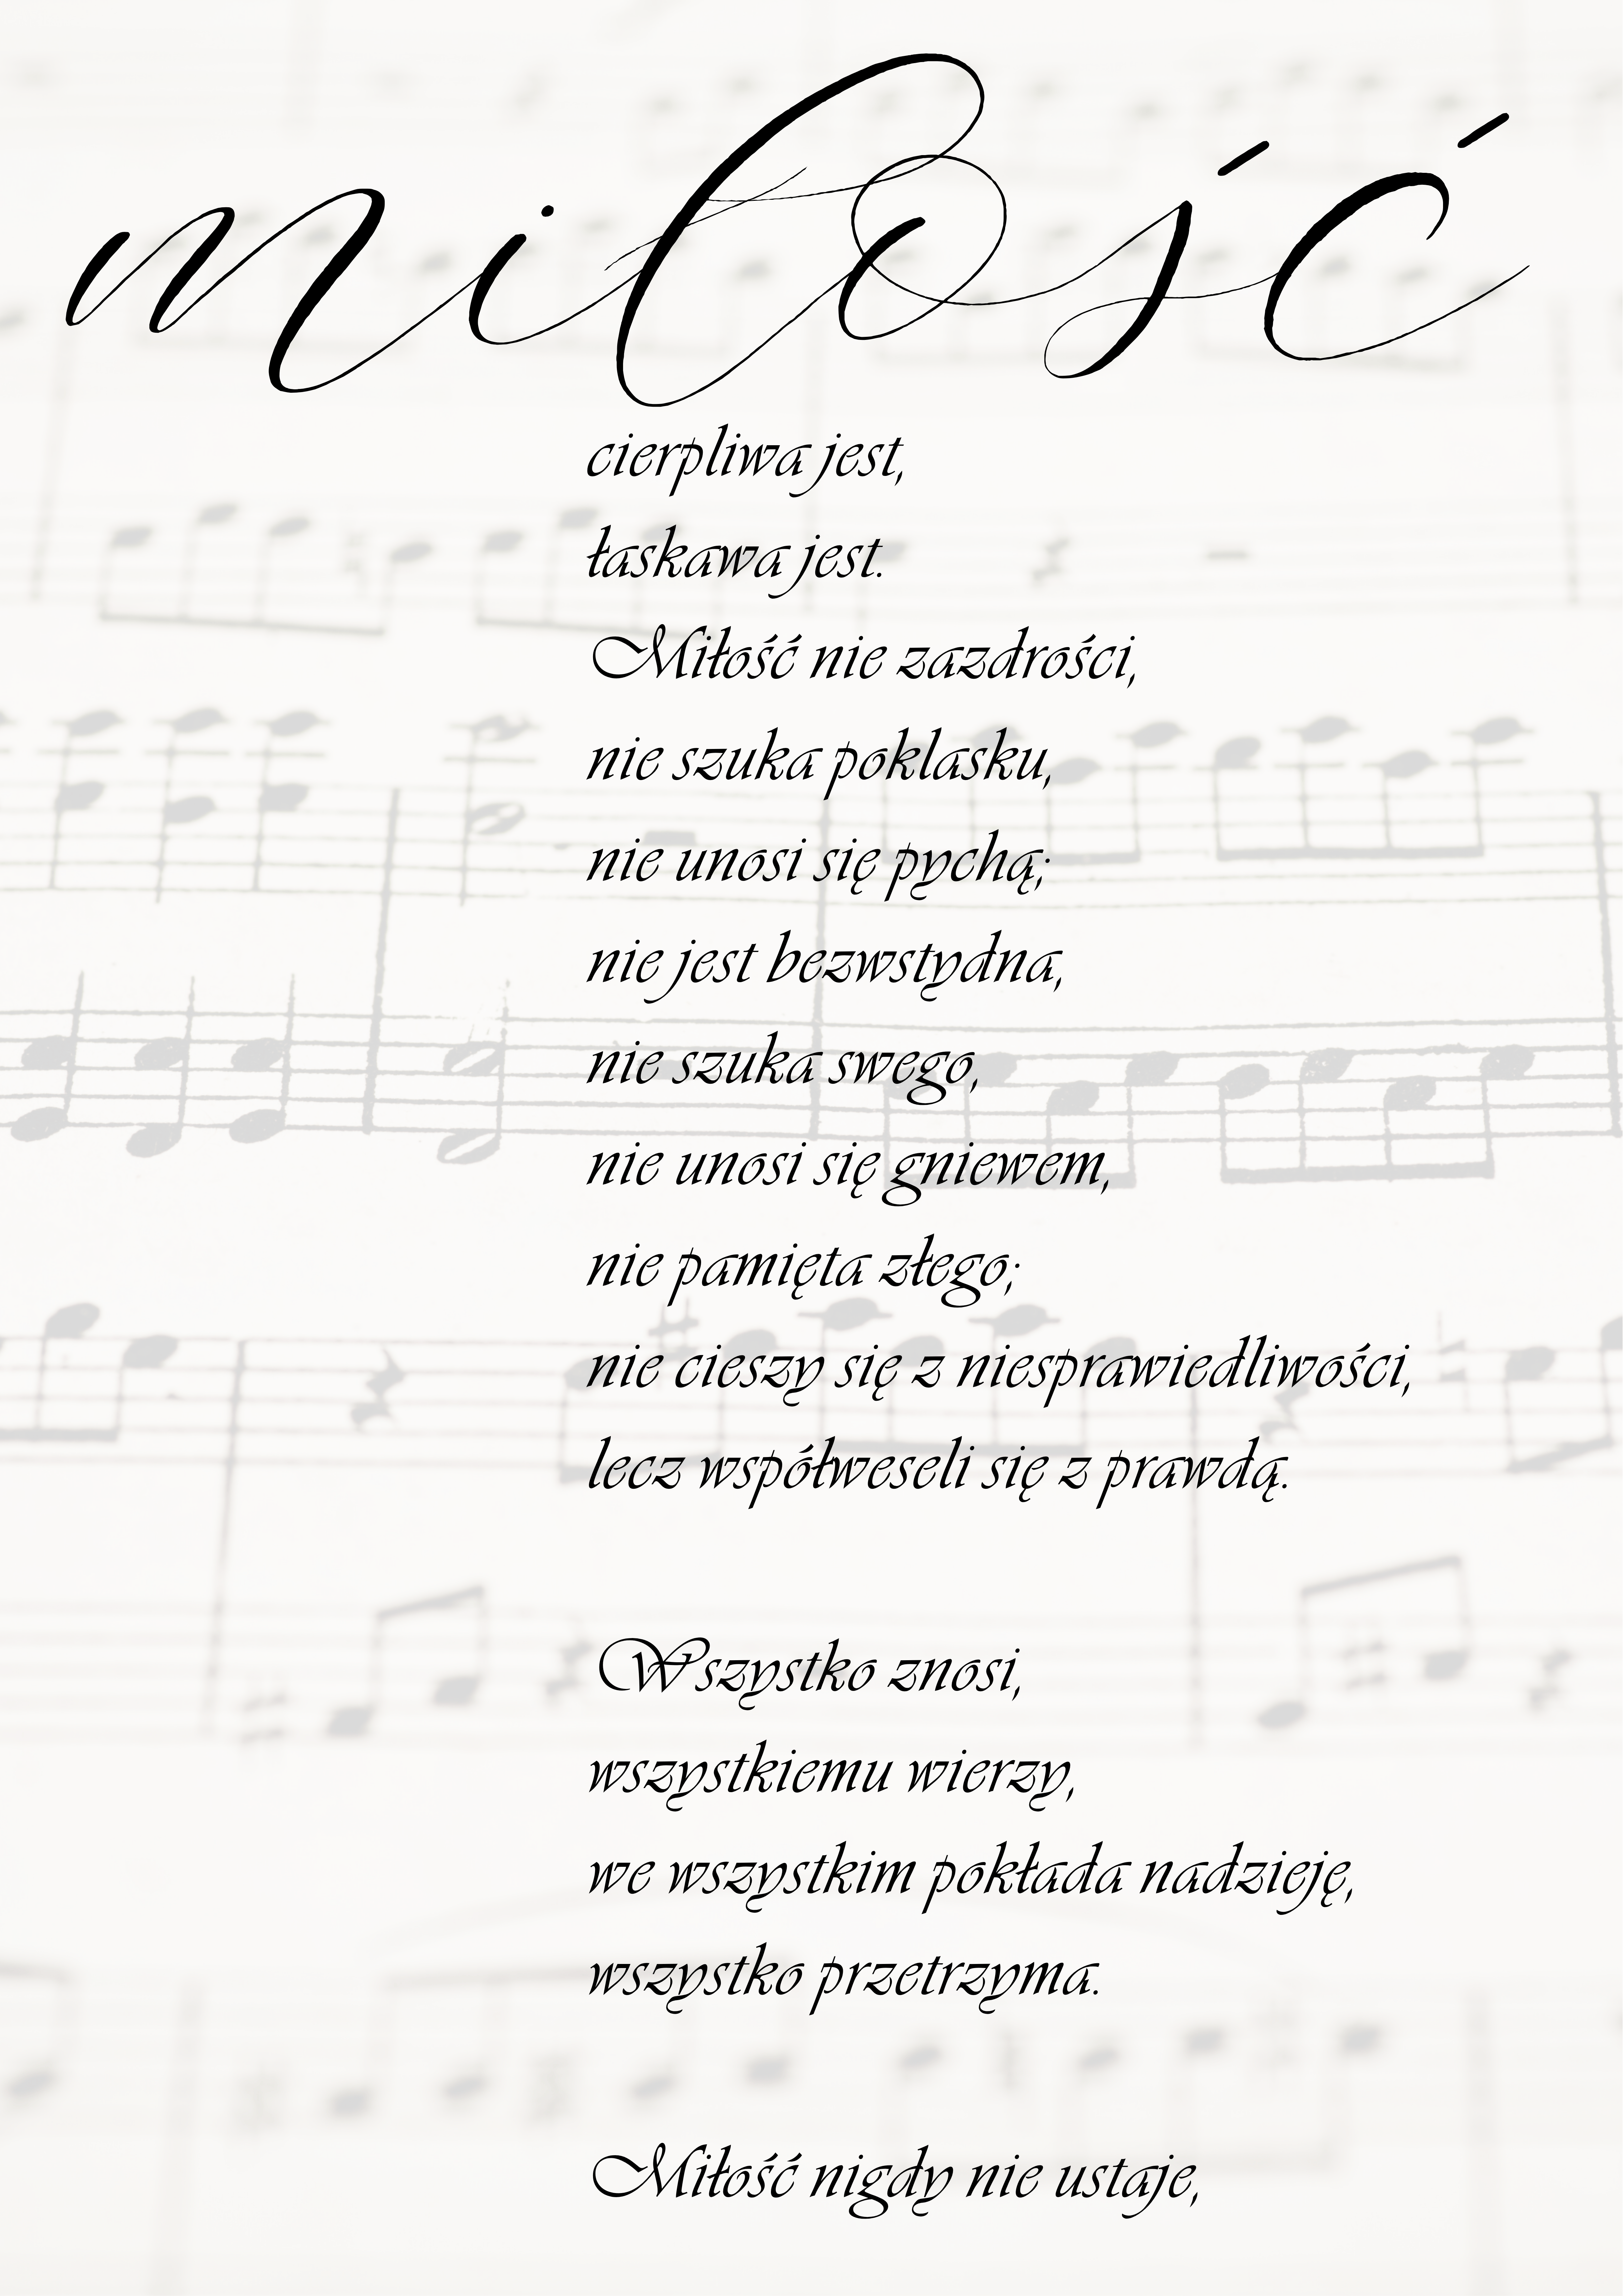 miłość
cierpliwa jest,
łaskawa jest.
Miłość nie zazdrości,
nie szuka poklasku,
nie unosi się pychą;
nie jest bezwstydna,
nie szuka swego,
nie unosi się gniewem,
nie pamięta złego;
nie cieszy się z niesprawiedliwości,
lecz współweseli się z prawdą.
Wszystko znosi,
wszystkiemu wierzy,
we wszystkim pokłada nadzieję,
wszystko przetrzyma.
Miłość nigdy nie ustaje,